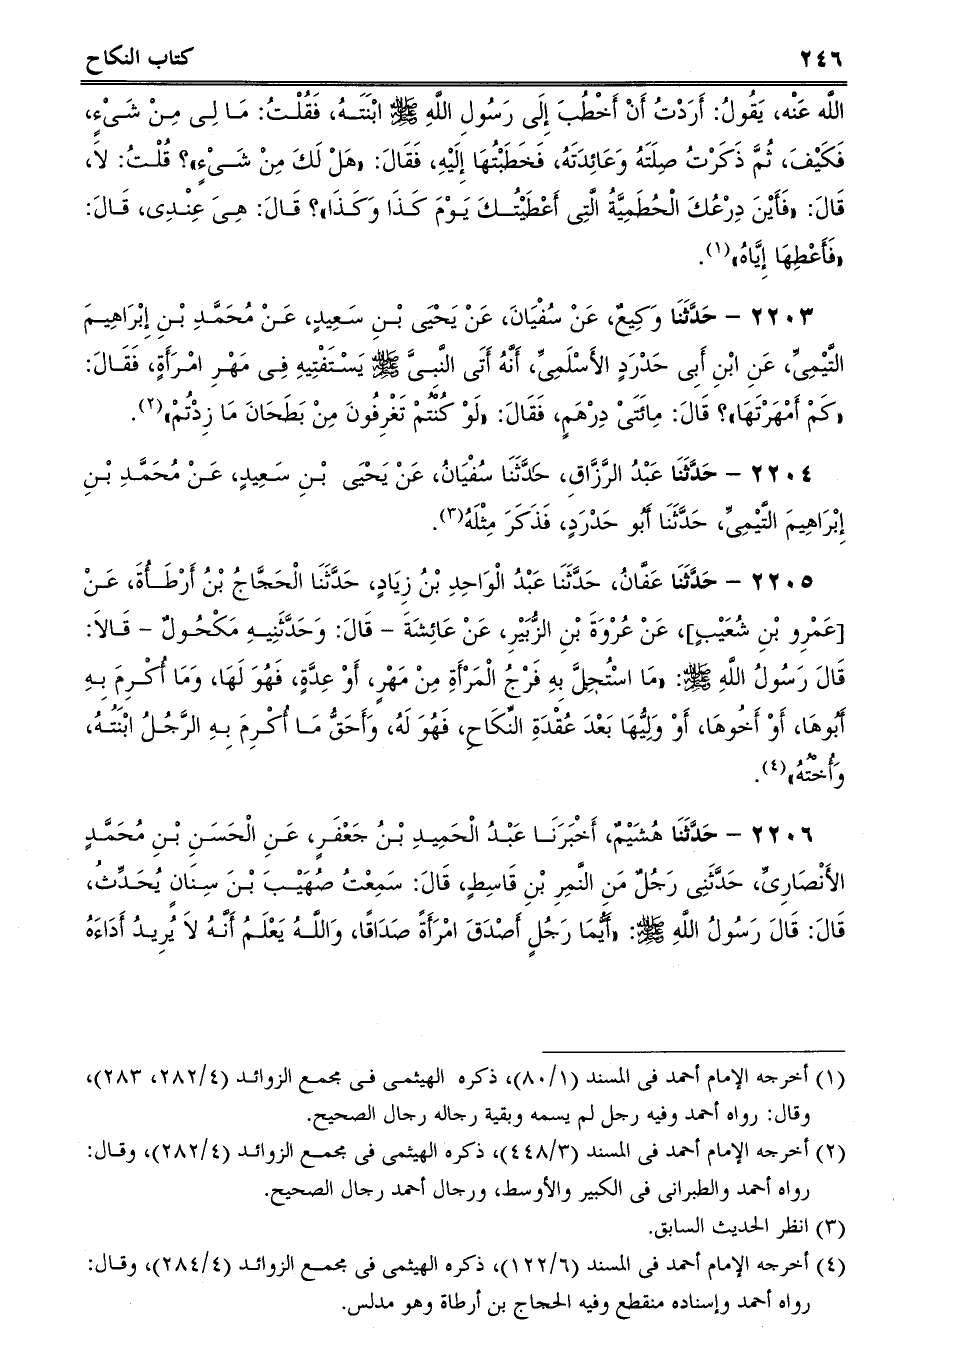 ٢٤٦ كتاب النكاح
اللَّه عَنْه، يَقُولُ: أَرَدْتُ أَنْ أَخْطُبَ إِلَى رَسُولِ اللَّهِ ﷺ ابْنَتَـهُ، فَقُلْـتُ: مَـا لِـى مِـنْ شَـىْءٍ،
فَكَيْفَ، ثُمَّ ذَكَرْتُ صِلَتَهُ وَعَائِدَتَهُ، فَخَطَبْتُهَا إِلَيْهِ، فَقَالَ: «هَلْ لَكَ مِنْ شَـىْءٍ»؟ قُلْتُ: لاَ،
قَالَ: «فَأَيْنَ دِرْعُكَ الْحُطَمِيَّةُ الَّتِى أَعْطَيْتُـكَ يَـوْمَ كَـذَا وَكَـذَا»؟ قَـالَ: هِـىَ عِنْـدِى، قَـالَ:
«فَأَعْطِهَا إِيَّاهُ»(١).
٢٢٠٣ – حَدَّثَنَا وَكِيعٌ، عَنْ سُفْيَانَ، عَنْ يَحْيَى بْـنِ سَـعِيدٍ، عَـنْ مُحَمَّـدِ بْـنِ إِبْرَاهِيـمَ
التَّيْمِىِّ، عَنِ ابْنِ أَبِى حَدْرَدٍ الأَسْلَمِىِّ، أَنَّهُ أَتَى النَّبِـىَّ ﷺ يَسْـتَفْتِيهِ فِـى مَهْـرِ امْـرَأَةٍ، فَقَـالَ:
«كَمْ أَمْهَرْتَهَا»؟ قَالَ: مِائَتَىْ دِرْهَمٍ، فَقَالَ: «لَوْ كُنْتُمْ تَغْرِفُونَ مِنْ بَطَحَانَ مَا زِدْتُمْ»(٢).
٢٢٠٤ – حَدَّثَنَا عَبْدُ الرَّزَّاقِ، حَدَّثَنَا سُفْيَانُ، عَنْ يَحْيَى بْـنِ سَـعِيدٍ، عَـنْ مُحَمَّـدِ بْـنِ
إِبْرَاهِيمَ التَّيْمِىِّ، حَدَّثَنَا أَبُو حَدْرَدٍ، فَذَكَرَ مِثْلَهُ(٣).
٢٢٠٥ – حَدَّثَنَا عَفَّانُ، حَدَّثَنَا عَبْدُ الْوَاحِدِ بْنُ زِيَادٍ، حَدَّثَنَا الْحَجَّاجُ بْنُ أَرْطَـأَةَ، عَـنْ
[عَمْرِو بْنِ شُعَيْبٍ]، عَنْ عُرْوَةَ بْنِ الزُّبَيْرِ، عَنْ عَائِشَةَ – قَالَ: وَحَدَّثَنِيـهِ مَكْحُـولٌ – قَـالاَ:
قَالَ رَسُولُ اللَّهِ ﷺ: «مَا اسْتُحِلَّ بِهِ فَرْجُ الْمَرْأَةِ مِنْ مَهْرٍ، أَوْ عِدَّةٍ، فَهُوَ لَهَا، وَمَا أُكْـرِمَ بِـهِ
أَبُوهَا، أَوْ أَخُوهَا، أَوْ وَلِيُّهَا بَعْدَ عُقْدَةِ النِّكَاحِ، فَهُوَ لَهُ، وَأَحَقُّ مَـا أُكْـرِمَ بِـهِ الرَّجُـلُ ابْنَتُـهُ،
وَأُخْتُهُ»(٤).
٢٢٠٦ – حَدَّثَنَا هُشَيْمٌ، أَخْبَرَنَـا عَبْـدُ الْحَمِيدِ بْـنُ جَعْفَـرٍ، عَـنِ الْحَسَـنِ بْـنِ مُحَمَّـدٍ
الأَنْصَارِىِّ، حَدَّثَنِى رَجُلٌ مَنِ النَّمِرِ بْنِ قَاسِطٍ، قَالَ: سَمِعْتُ صُهَيْـبَ بْـنَ سِـنَانٍ يُحَـدِّثُ،
قَالَ: قَالَ رَسُولُ اللَّهِ ﷺ: «أَيُّمَا رَجُلٍ أَصْدَقَ امْرَأَةً صَدَاقًا، وَاللَّـهُ يَعْلَـمُ أَنَّـهُ لاَ يُرِيـدُ أَدَاءَهُ
(١) أخرجه الإمام أحمد فى المسند (٨٠/١)، ذكره الهيثمى فـى مجمع الزوائـد (٢٨٢/٤، ٢٨٣)،
وقال: رواه أحمد وفيه رجل لم يسمه وبقية رجاله رجال الصحيح.
(٢) أخرجه الإمام أحمد فى المسند (٤٤٨/٣)، ذكره الهيثمى فى مجمـع الزوائـد (٢٨٢/٤)، وقـال:
رواه أحمد والطبرانى فى الكبير والأوسط، ورجال أحمد رجال الصحيح.
(٣) انظر الحديث السابق.
(٤) أخرجه الإمام أحمد فى المسند (١٢٢/٦)، ذكره الهيثمى فى مجمـع الزوائـد (٢٨٤/٤)، وقـال:
رواه أحمد وإسناده منقطع وفيه الحجاج بن أرطاة وهو مدلس.